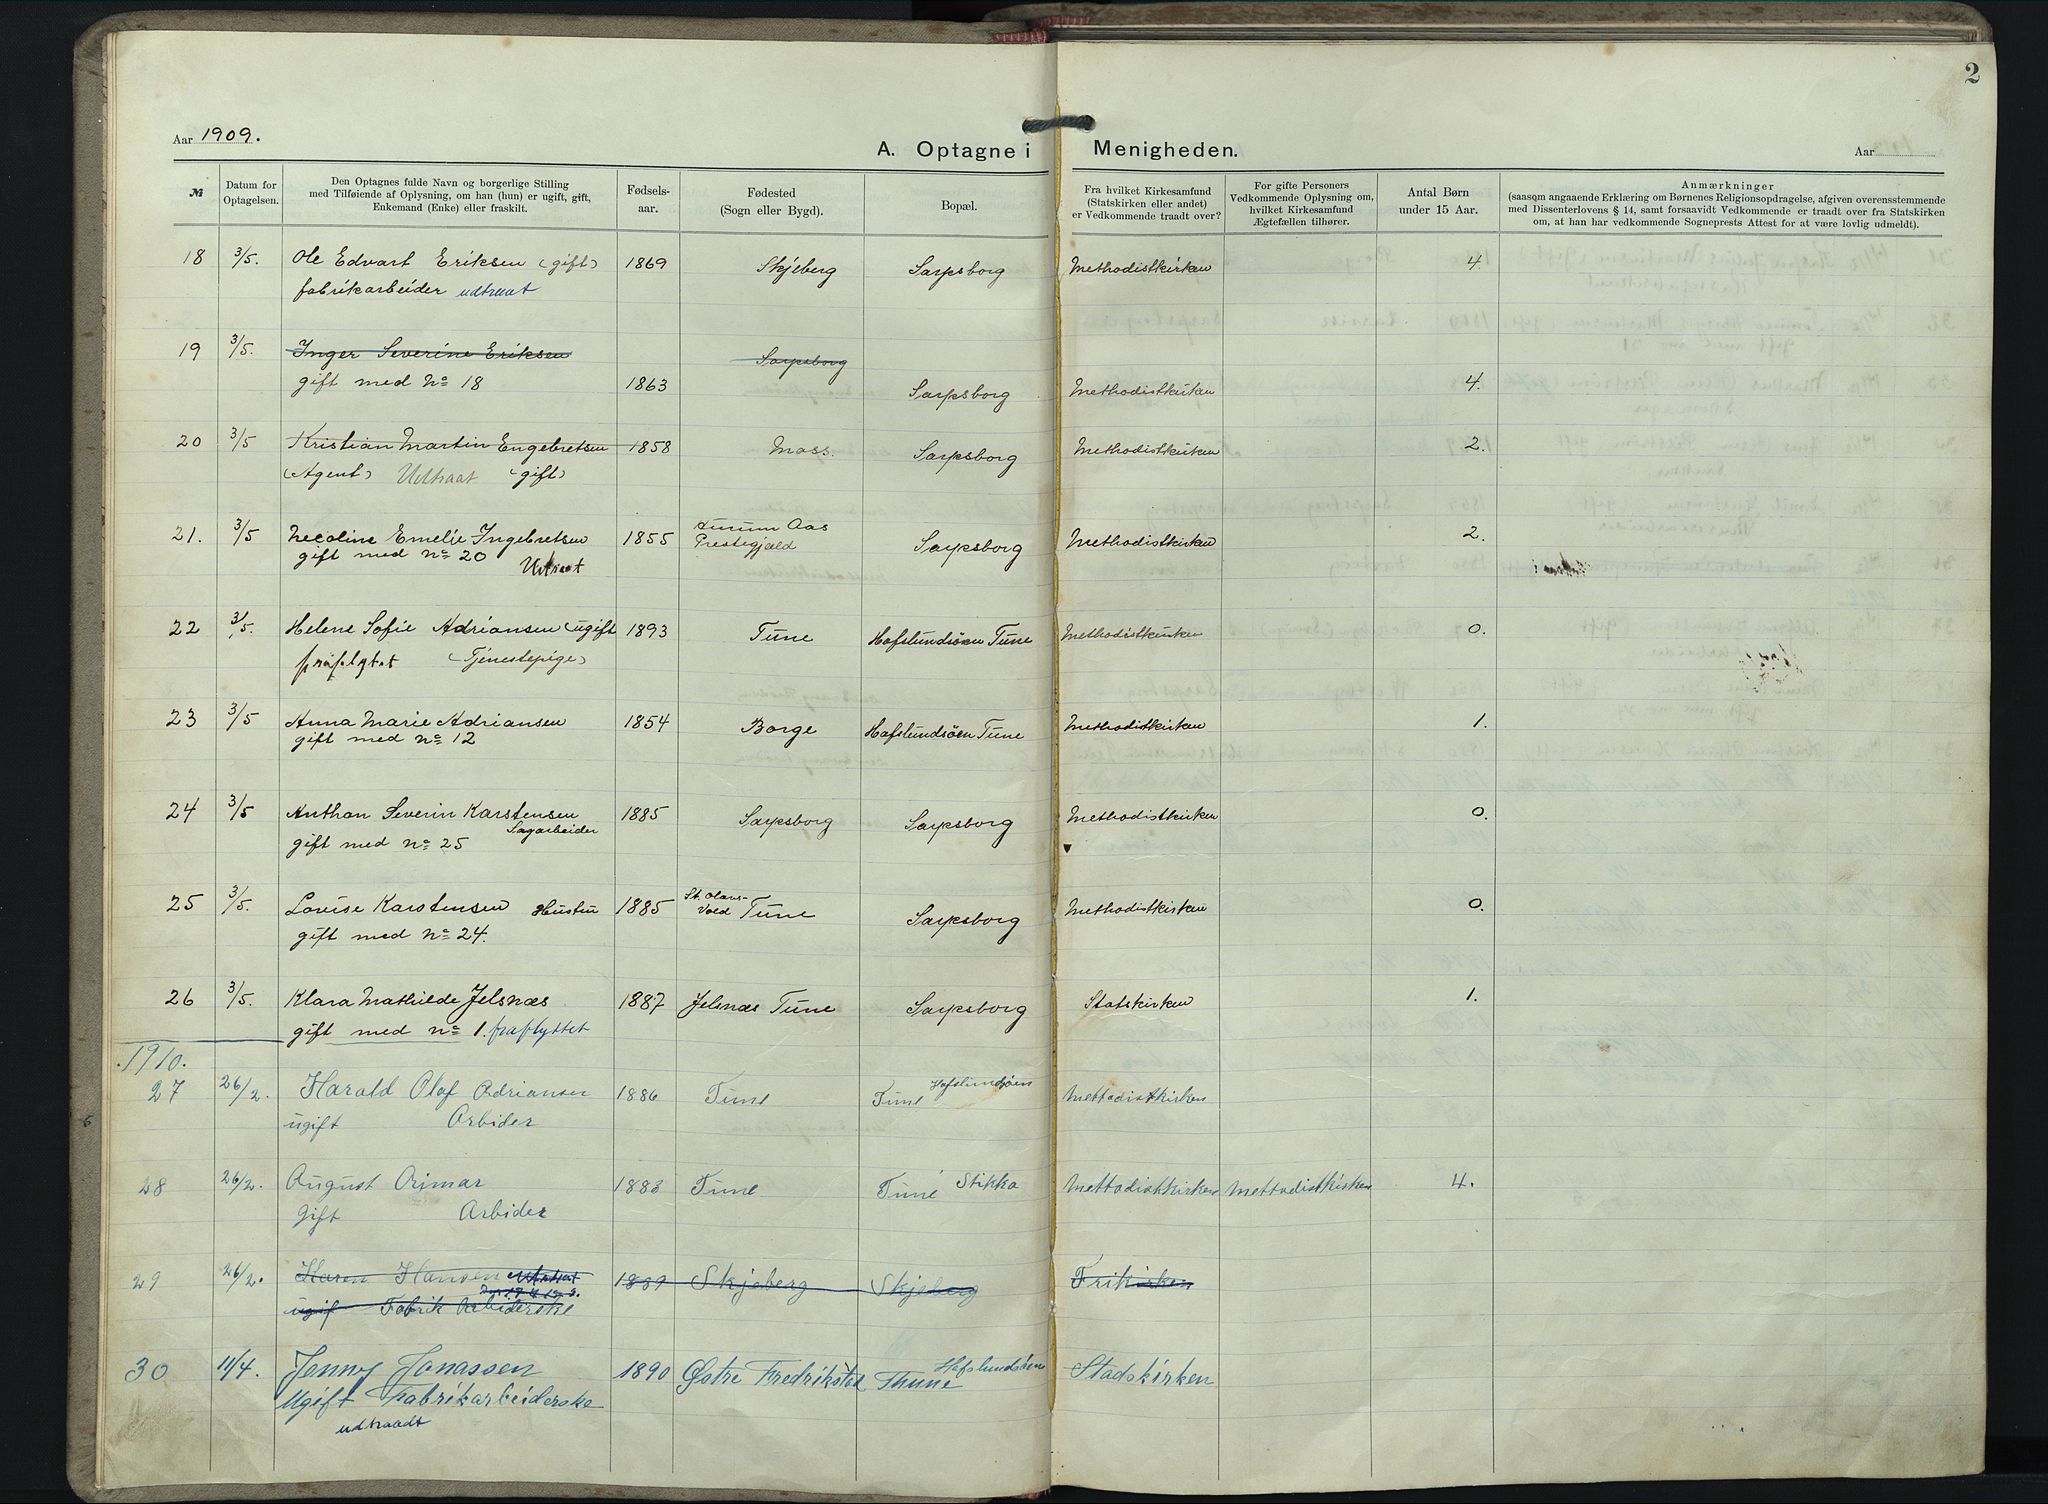 2
Aar 1909.
A. Optagne i Menigheden.
Aar
№
Datum for Optagelsen.
Den Optagnes fulde Navn og borgerlige Stilling
med Tilføiende af Oplysning, om han (hun) er ugift, gift,
Enkemand (Enke) eller fraskilt.
Fødsels-
aar.
Fødested
(Sogn eller Bygd).
Bopæl.
Fra hvilket Kirkesamfund
(Statskirken eller andet)
er Vedkommende traadt over?
For gifte Personers
Vedkommende Oplysning om,
hvilket Kirkesamfund
Ægtefællen tilhører.
Antal Børn
under 15 Aar.
Anmærkninger
(saasom angaaende Erklæring om Børnenes Religionsopdragelse, afgiven overensstemmende
med Dissenterlovens § 14, samt forsaavidt Vedkommende er traadt over fra Statskirken
om, at han har vedkommende Sogneprests Attest for at være lovlig udmeldt).
18 3/5. Ole Edvart Eriksen (gift) 1869 Skjeberg Sarpsborg Methodistkirken 4.
fabrikarbeider udtraat
19 3/5. Inger Severine Eriksen Sarpsborg
gift med No 18 1863 Sarpsborg Methodistkirken 4.
20 3/5 Kristian Martin Engebretsen 1858 Moss. Sarpsborg Methodistkirken 2.
(Agent) Udtraat (gift)
21. 3/5 Necoline Emelie Ingebretsen 1855 Aas Prestegjæld Sarpsborg Methodistkirken 2.
gift med No 20 Udtraat
22 3/5. Helene Sofie Adriansen (ugift 1893 Tune Hafslundsöen Tune Methodistkirken 0.
fraflytet (Tjenestepige)
23 3/5 Anna Marie Adriansen 1854 Borge Hafslundsöen Tune Methodistkirken 1.
gift med No 12
24 3/5 Anthon Severin Karstensen 1885 Sarpsborg Sarpsborg Methodistkirken 0.
Sagarbeider
gift med No 25
25 3/5. Lovise Karstensen Hustru 1885 St. Olavs-Vold Tune Sarpsborg Methodistkirken 0.
gift med No 24.
26 3/5. Klara Mathilde Jelsnæs 1887 Jelsnæs Tune Sarpsborg Statskirken 1.
gift med No 1. fraflyttet
1910.
27 26/2. Harald Olaf Adriansen 1886 Tune Tune Hafslundsöen Mettodistkirken
ugift Arbider
28 26/2. August Arimar 1883 Tune Tune Stikka Mettodistkirken Mettodistkirken 4.
Gift Arbider
29 26/2. Karen Hansen Udtraat 1889 Skjeberg Skjeberg Frikirken
ugif Fabrik Arbiderske
30 11/4. Jenny Jonassen 1890 Østre Fredrikstad Thune Hafslundsöen Stadskirken
Ugift Fabrikarbeiderske
udtraadt